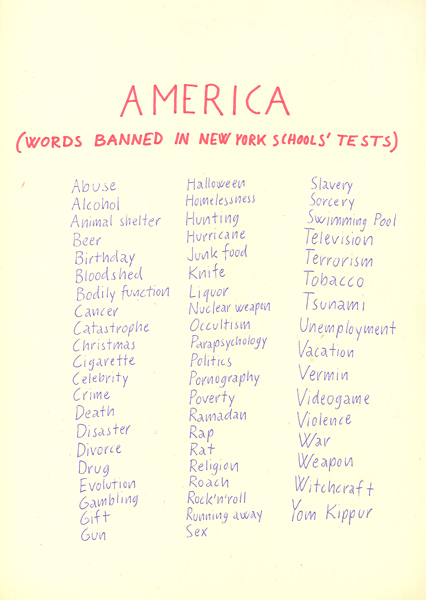 AMERICA
(WORDS BANNED IN NEW YORK SCHOOLS' TESTS)
Abuse
Alcohol
Animal shelter
Beer
Birthday
Bloodshed
Bodily function
Cancer
Catastrophe
Christmas
Cigarette
Celebrity
Crime
Death
Disaster
Divorce
Drug
Evolution
Gambling
Gift
Gun
Halloween
Homelessness
Hunting
Hurricane
Junk food
Knife
Liquor
Nuclear weapon
Occultism
Parapsychology
Politics
Pornography
Poverty
Ramadan
Rap
Rat
Religion
Roach
Rock'n'roll
Running away
Sex
Slavery
Sorcery
Swimming Pool
Television
Terrorism
Tobacco
Tsunami
Unemployment
Vacation
Vermin
Videogame
Violence
War
Weapon
Witchcraft
Yom Kippur